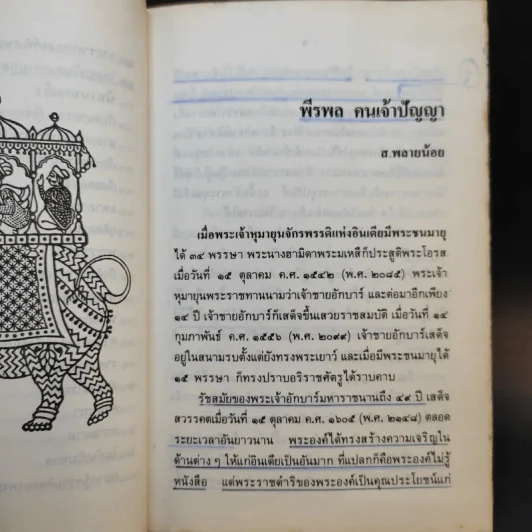 พีรพล คนเจ้าปัญญา
ส.พลายน้อย
เมื่อพระเจ้าหุมายุนจักรพรรดิแห่งอินเดียมีพระชนมายุ
ได้ ๓๔ พรรษา พระนางฮามิดาพระมเหสีก็ประสูติพระโอรส
เมื่อวันที่ ๑๕ ตุลาคม ค.ศ. ๑๕๔๒ (พ.ศ. ๒๐๘๕) พระเจ้า
หุมายุนพระราชทานนามว่าเจ้าชายอักบาร์ และต่อมาอีกเพียง
๑๔ ปี เจ้าชายอักบาร์ก็เสด็จขึ้นเสวยราชสมบัติ เมื่อวันที่ ๑๔
กุมภาพันธ์ ค.ศ. ๑๕๕๖ (พ.ศ. ๒๐๙๙) เจ้าชายอักบาร์เสด็จ
อยู่ในสนามรบตั้งแต่ยังทรงพระเยาว์ และเมื่อมีพระชนมายุได้
๑๕ พรรษา ก็ทรงปราบอริราชศัตรูได้ราบคาบ
รัชสมัยของพระเจ้าอักบาร์มหาราชนานถึง ๔๙ ปี เสด็จ
สวรรคตเมื่อวันที่ ๑๕ ตุลาคม ค.ศ. ๑๖๐๕ (พ.ศ. ๒๑๔๘) ตลอด
ระยะเวลาอันยาวนาน พระองค์ได้ทรงสร้างความเจริญใน
ด้านต่าง ๆ ให้แก่อินเดียเป็นอันมาก ที่แปลกก็คือพระองค์ไม่รู้
หนังสือ แต่พระราชดำริของพระองค์เป็นคุณประโยชน์แก่